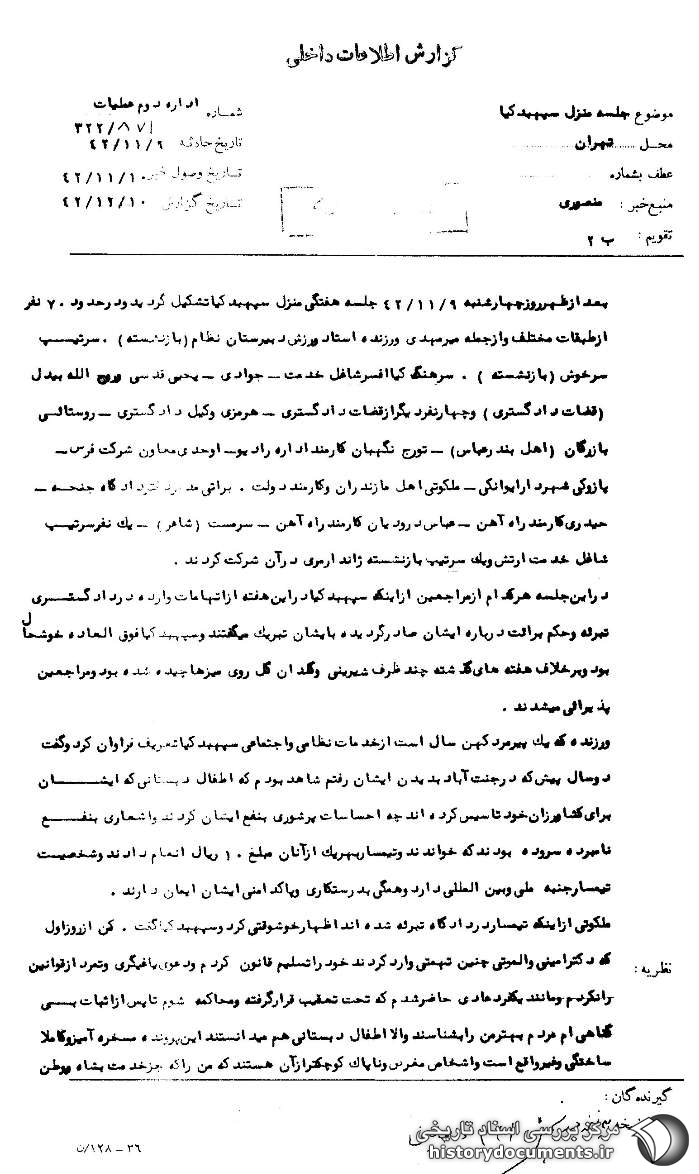 گزارش اطلاعات داخلی
موضوع جلسه منزل سپهبد کیا
محل ..... تهران .....
عطف بشماره
منبع خبر : منصوری
تقویم : ب ۲
شماره اداره دوم عملیات
۳۲۲/۸۷۱
تاریخ حادثه ۴۲/۱۱/۹
تاریخ وصول خبر ۴۲/۱۱/۱۰
تاریخ گزارش ۴۲/۱۲/۱۰
بعد از ظهر روز چهارشنبه ۴۲/۱۱/۹ جلسه هفتگی منزل سپهبد کیا تشکیل گردید و در حدود ۷۰ نفر
از طبقات مختلف و از جمله میرمهدی ورزنده استاد ورزش دبیرستان نظام (بازنشسته) . سرتیپ
سرخوش (بازنشسته) . سرهنگ کیا افسر شاغل خدمت ـ جوادی ـ یحیی قدسی وروح الله بیدل
(قضات دادگستری) وچهارنفر دیگر از قضات دادگستری ـ هرمزی وکیل دادگستری ـ روستائی
بازرگان (اهل بندرعباس) ـ تورج نگهبان کارمند اداره رادیو ـ اوحدی معاون شرکت فرس ـ
پازوکی شهردار ایوانکی ـ ملکوتی اهل مازندران وکارمند دولت . براتی مدیر دفتر دادگاه جنحه ـ
حیدری کارمند راه آهن ـ عباس درودیان کارمند راه آهن ـ سرمست (شاعر) ـ یک نفر سرتیپ
شاغل خدمت ارتش ویک سرتیپ بازنشسته ژاندارمری در آن شرکت کردند .
در این جلسه هرکدام از مراجعین از اینکه سپهبد کیا در این هفته از اتهامات وارده در دادگستری
تبرئه وحکم برائت درباره ایشان صادر گردیده بایشان تبریک میگفتند وسپهبد کیا فوق العاده خوشحال
بود وبرخلاف هفته های گذشته چند ظرف شیرینی وگلدان گل روی میزها چیده شده بود ومراجعین
پذیرائی میشدند .
ورزنده که یک پیرمرد کهن سال است از خدمات نظامی واجتماعی سپهبد کیا تعریف فراوان کرد وگفت
دوسال پیش که در جنت آباد بدیدن ایشان رفتم شاهد بودم که اطفال دبستانی که ایشان
برای کشاورزان خود تاسیس کرده اند چه احساسات پرشوری بنفع ایشان کردند واشعاری بنفع
نامبرده سروده بودند که خواندند وتیمسار بهریک از آنان مبلغ ۱۰ ریال انعام دادند وشخصیت
تیمسار جنبه ملی وبین المللی دارد وهمگی بدرستکاری وپاکدامنی ایشان ایمان دارند .
ملکوتی از اینکه تیمسار در دادگاه تبرئه شده اند اظهار خوشوقتی کرد وسپهبد کیا گفت . من از روز اول
که دکتر امینی والموتی چنین تهمتی وارد کردند خود را تسلیم قانون کردم ودعوی یاغیگری وتمرد از قوانین
رانکردم ومانند یکفرد عادی حاضر شدم که تحت تعقیب قرار گرفته ومحاکمه شوم تا پس از اثبات بی
گناهی ام مردم بهتر من را بشناسند والا اطفال دبستانی هم میدانستند این پرونده مسخره آمیز وکاملا
ساختگی وغیرواقع است واشخاص مغرض وناپاک کوچکتر از آن هستند که من را که جز خدمت بشاه ووطن
نظریه :
گیرندگان :
۳۶ ـ ۱۲۸/ت
مرکز بررسی اسناد تاریخی
historydocuments.ir